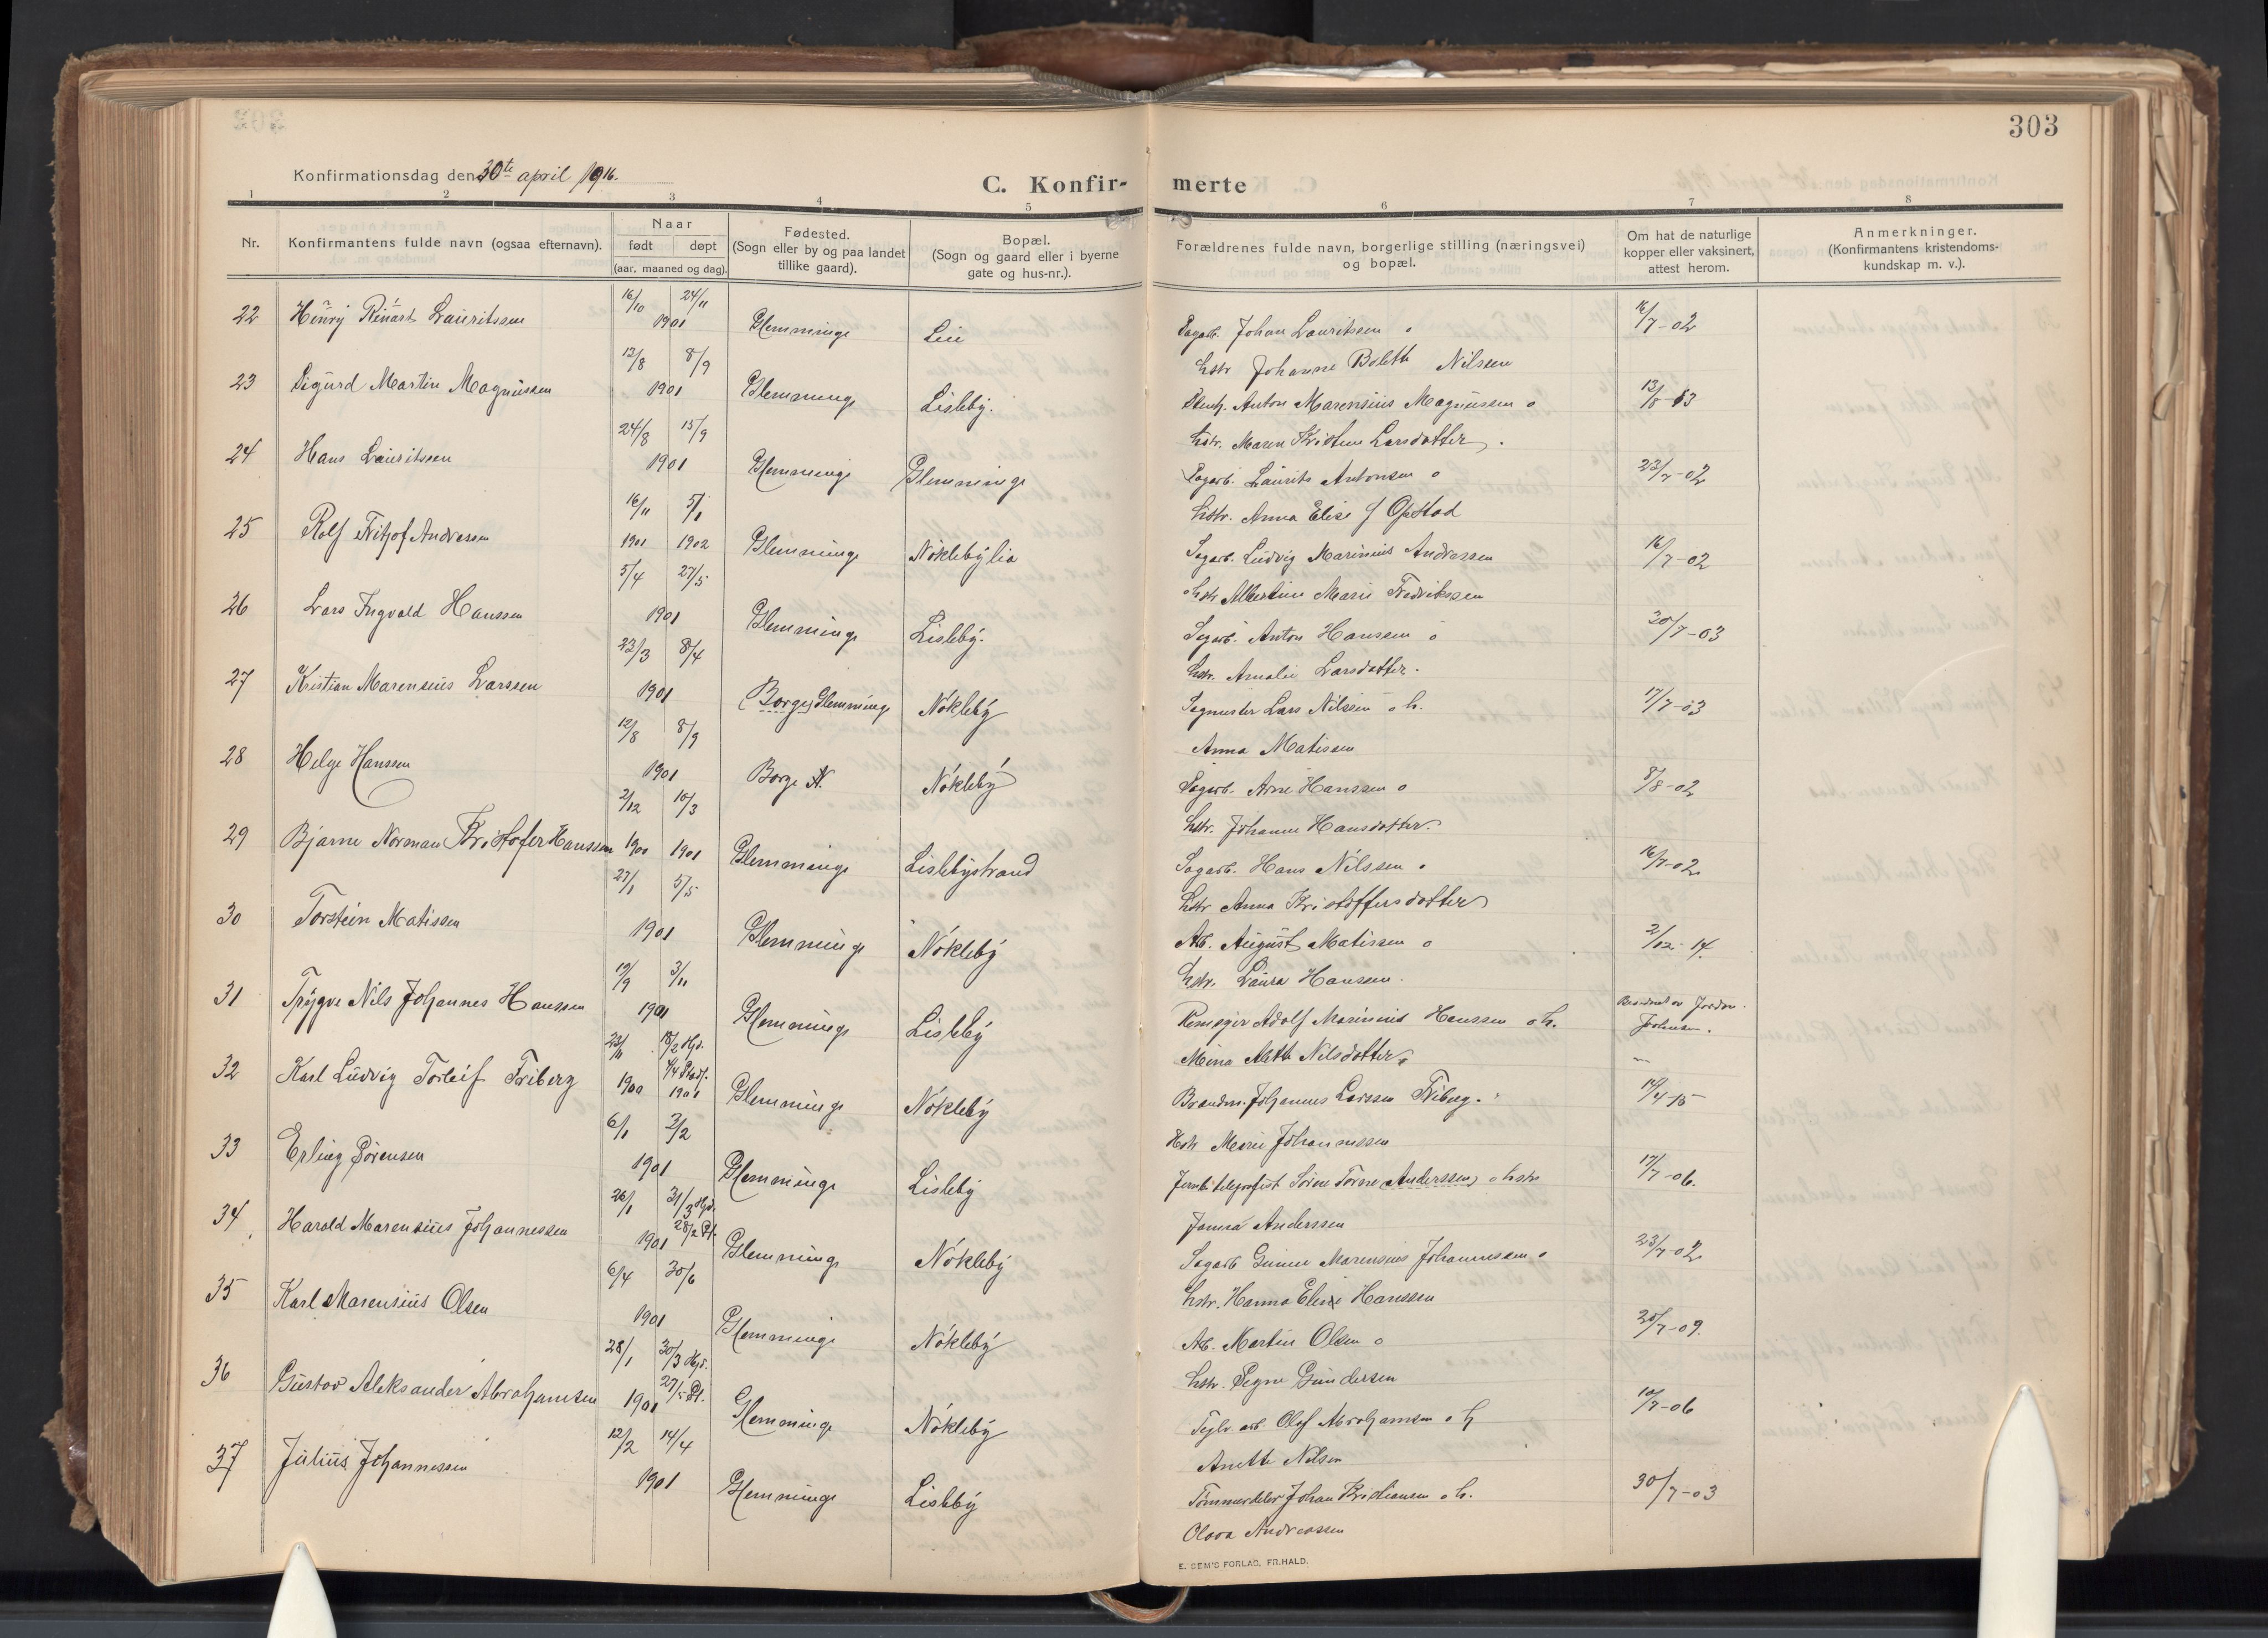 303
Konfirmationsdag den 30te april 1916.
C. Konfir- merte
1 2 3 4 5 6 7 8
Nr.
Konfirmantens fulde navn (ogsaa efternavn).
Naar
født døpt
(aar, maaned og dag).
Fødested.
(Sogn eller by og paa landet
tillike gaard).
Bopæl.
(Sogn og gaard eller i byerne
gate og hus-nr.).
Forældrenes fulde navn, borgerlige stilling (næringsvei)
og bopæl.
Om hat de naturlige
kopper eller vaksinert,
attest herom.
Anmerkninger.
(Konfirmantens kristendoms-
kundskap m. v.).
16/10 24/11
22 Henry Reinart Lauritssen 1901 Glemminge Lie Sagarb. Johan Lauritsen o 16/7-02
hstr Johanne Bolette Nilssen
13/8 8/9
23 Sigurd Martin Magnussen 1901 Glemminge Lisleby. Stenh. Anton Marensius Magnussen o 13/8-13
hstr. Maren Kristine Larsdatter.
24/8 15/9
24 Hans Lauritssen 1901 Glemminge Glemminge Sagarb. Laurits Antonsen o 23/7-02
hstr. Anna Elise f Opstad
16/11 5/1
25 Rolf Fritjof Andressen 1901 1902 Glemminge Nøklebylia Sagarb. Ludvig Marinius Andressen 16/7-02
ohstr Albertine Marie Fredrikssen
5/4 27/5
26 Lars Ingvald Hanssen 1901 Glemminge Lisleby. Sagarb. Anton Hanssen o 30/7-03
hstr. Amalie Larsdatter.
23/3 8/4
27 Kristian Marensius Larssen 1901 (Borge) Glemminge Nøkleby Sagmester Lars Nilssen o h. 17/7-03
Anna Matissen
12/8 8/9
28 Helge Hanssen 1901 Borge Nøkleby Sagarb. Arne Hanssen o 8/8-02
hstr. Johanne Hansdatter.
2/12 10/3
29 Bjarne Norman Kristofer Hanssen 1900 1901 Glemminge Lislebystrand Sagarb. Hans Nilssen o 16/7-02
hstr Anna Kristoffersdatter
27/1 5/5
30 Torstein Matissen 1901 Glemminge Nøkleby Arb. August Matissen o 2/12-14.
hstr. Laura Hanssen.
19/9 3/11
31 Trygve Nils Johannes Hanssen 1901 Glemminge Lisleby Remeger Adolf Marinius Hanssen o h.
Mina Alette Nilsdatter
23/11 18/2 Hjd.
1/4 Stadf.
32 Karl Ludvig Torleif Friberg 1900 1901 Glemminge Nøkleby Brandm. Johannes Larssen Friberg. 19/4-15
Hstr Marie Johannessen
6/1 3/2
33 Erling Sørensen 1901 Glemminge Lisleby Jernb. telegrafist Sørine Torine Anderssen, o hstr 17/7-06.
Anderssen
26/1 31/3 Hjd.
34 Harald Marensius Johannessen 1901 28/2 St. Glemminge Nøkleby Sagarb Marensius Johannessen o 23/7-02
hstr. Hanna Elise Hanssen
6/4 30/6
35 Karl Marensius Olsen 1901 Glemminge Nøkleby Arb. Martin Olsen o 20/7-09.
hstr. Signe Gundersen
28/1 30/3 Hjd.
36 Gustav Aleksander Abrahamsen 1901 27/5 St. Glemminge Nøkleby Teglv. arb. Olaf Abrahamsen o h 10/7-06
Anette Nilsen
12/2 14/4
37 Julius Johannessen 1901 Glemminge Lisleby Tømmerdeler Johan Kristiansen o h. 30/7-03
Olava Andreassen
E. SEM'S FORLAG, FR.HALD.